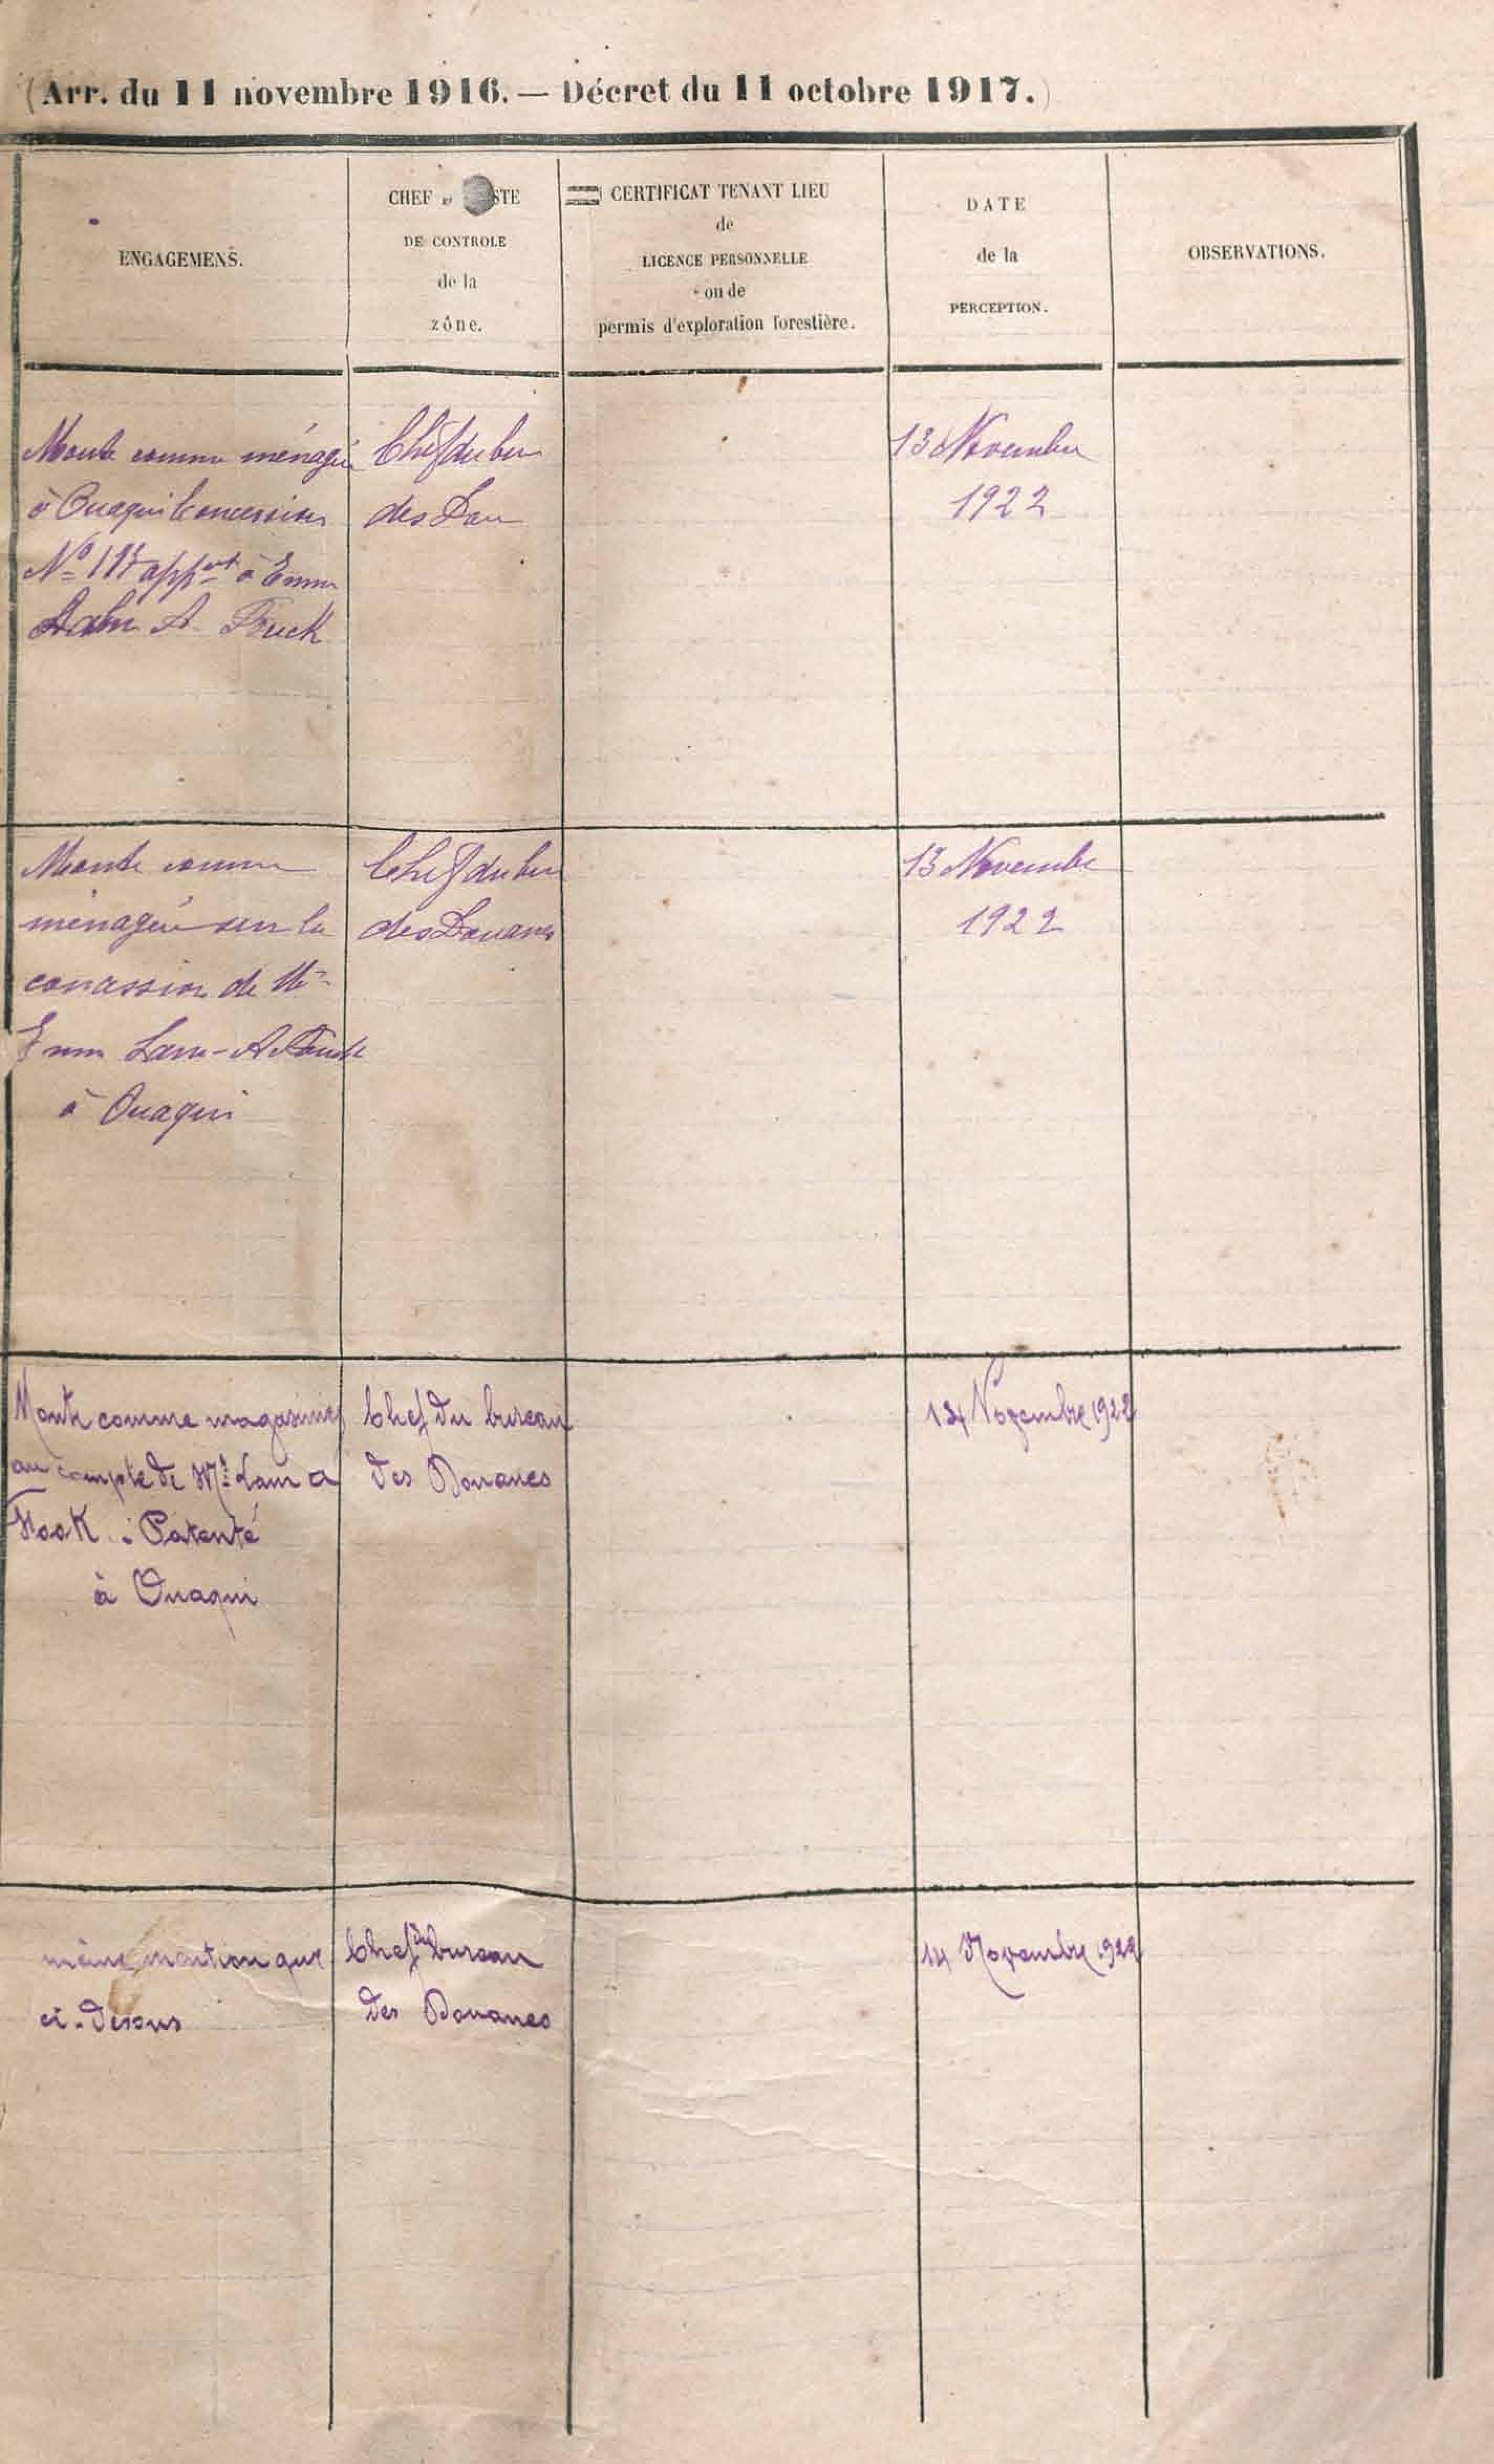 (Arr. du 11 novembre 1916. — Décret du 11 octobre 1917.)
ENGAGEMENS.
CHEF DE STE
DE CONTROLE
de la
zône.
CERTIFICAT TENANT LIEU
de
LICENCE PERSONNELLE
ou de
permis d'exploration forestière.
DATE
de la
PERCEPTION.
OBSERVATIONS.
Monte comme ménagère
à Ouaqui Concession
Nº 117 appᵗ à Emm
A Fouck
Chef du bur
des Dou
13 Novembre
1922
Monte comme
ménagère sur la
concession de Mr
Emm Lam-A-Fouck
à Ouaqui
Chef du bur
des Douanes
13 Novembre
1922
Monte comme magasinier
au compte de Mr Lam a
Fook : Patenté
à Ouaqui
Chef du bureau
des Douanes
14 Novembre 1922
même mention que
ci-dessus
Chef du bureau
des Douanes
14 Novembre 1922